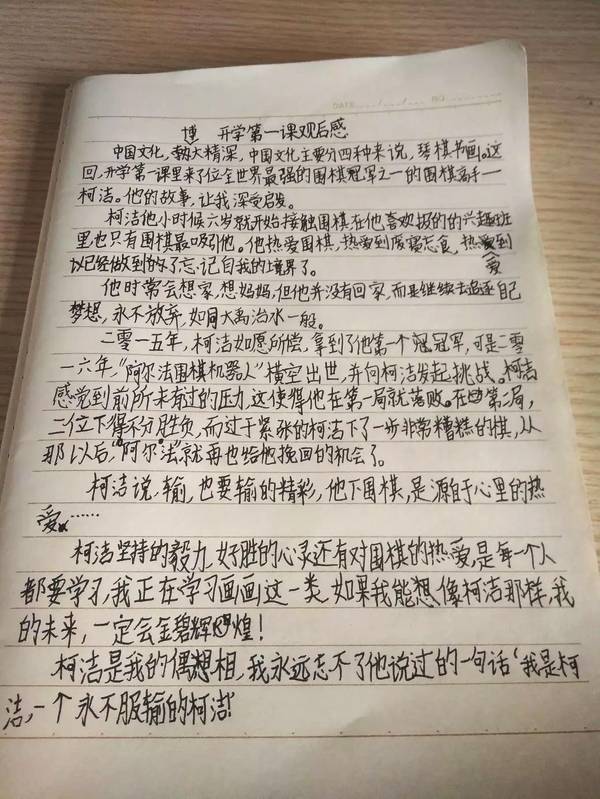 DATE NO
博 开学第一课观后感
中国文化,大精深,中国文化主要分四种来说,琴棋书画。这
回,开学第一课里来了位全世界最强的围棋冠军之一的围棋高手—
柯洁。他的故事,让我深受启发。
柯洁他小时候六岁就开始接触围棋在他喜欢报的的兴趣班
里,也只有围棋最吸引他。他热爱围棋,热爱到废寝忘食,热爱到
以已经做到做了忘记自我的境界了。
爱
他时常会想家,想妈妈,但他并没有回家,而是继续去追逐自己
梦想,永不放弃,如同大禹治水一般。
二零一五年,柯洁如愿所偿,拿到了他第一个冠冠军,可是二零
一六年,“阿尔法围棋机器人”横空出世,并向柯洁发起挑战。柯洁
感觉到前所未有过的压力,这使得他在第一局就落败。在第二局,
二位下得不分胜负,而过于紧张的柯洁下了一步非常糟糕的棋,从
那以后,“阿尔法”就再也给他挽回的机会了。
柯洁说,输,也要输的精彩,他下围棋,是源于心里的热
爱。……
柯洁坚持的毅力,好胜的心灵还有对围棋的热爱,是每一个人
都要学习,我正在学习画画这一类,如果我能想像柯洁那样,我
的未来,一定会金碧辉煌!
柯洁是我的偶想相,我永远忘不了他说过的一句话‘我是柯
洁,一个永不服输的柯洁!’